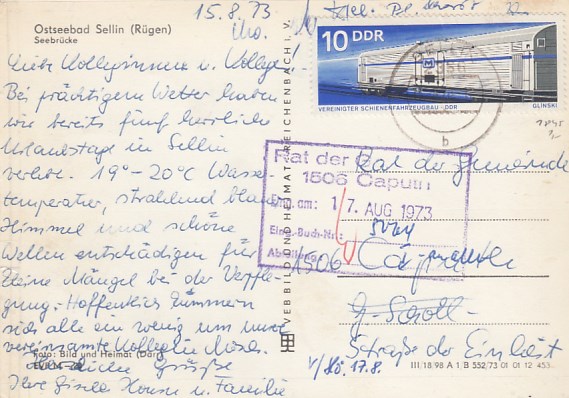 Ostseebad Sellin (Rügen)
Seebrücke
15.8.73
Liebe Kolleginnen u. Kollegen!
Bei prächtigem Wetter haben
wir bereits fünf herrliche
Urlaubstage in Sellin
verlebt. 19°-20°C Wasser-
temperatur, strahlend blauer
Himmel und schöne
Wellen entschädigen für
kleine Mängel bei der Verpfle-
gung. Hoffentlich kümmern
sich alle ein wenig um unsere
vereinsamte Kollegin
Foto: Bild und Heimat
Herzliche Grüße
Ihre Gisela u. Familie
VEB BILD UND HEIMAT REICHENBACH I. V.
10 DDR
VEREINIGTER SCHIENENFAHRZEUGBAU · DDR
GLINSKI
b
Rat der G
1506 Caputh
Eing. am: 17. AUG 1973
Eing. Buch-Nr.:
Abteilung:
Rat der Gemeinde
1506 Caputh
Straße der Einheit
17.8.
III/18 98 A 1 B 552/73 01 01 12 453